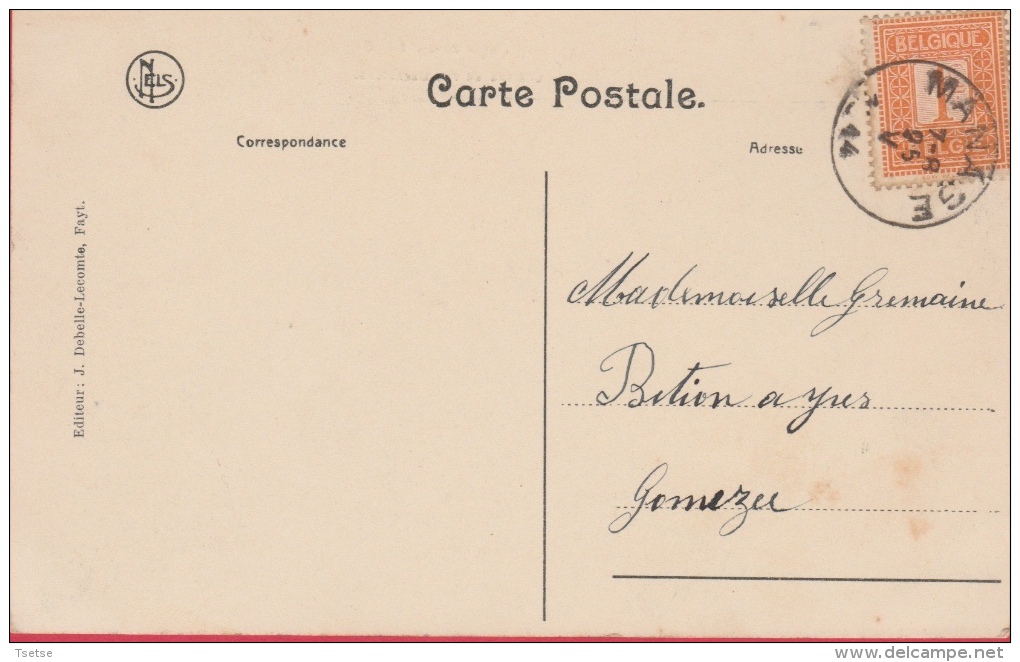 NELS
Carte Postale.
Correspondance
Adresse
BELGIQUE
1
MANAGE
7-8
25
V
14
Editeur : J. Debelle-Lecomte, Fayt.
Mademoiselle Gremaine
Bition a yves
Gomezee
Tsetse
delcampe.net